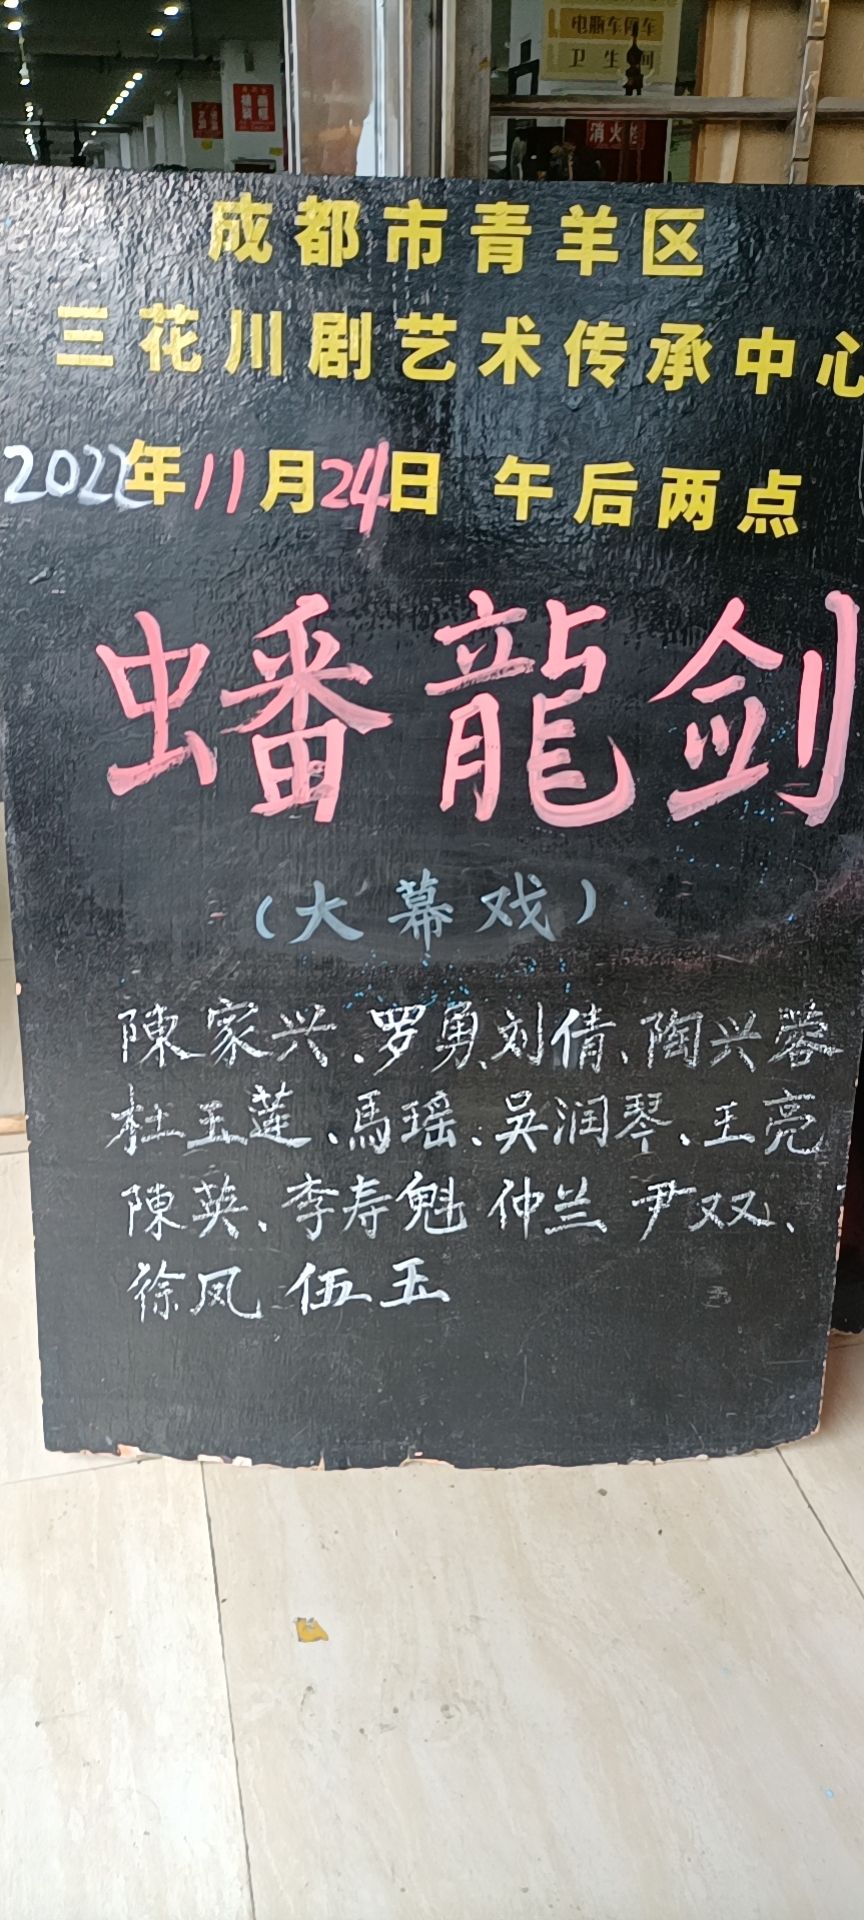 电脑车网车
卫生间
消火栓
成都市青羊区
三花川剧艺术传承中心
2022年11月24日 午后两点
蟠龍剑
（大幕戏）
陳家兴、罗勇、刘倩、陶兴蓉
杜玉莲、馬瑶、吴润琴、王亮
陳英、李寿魁 仲兰 尹双、
徐凤 伍玉